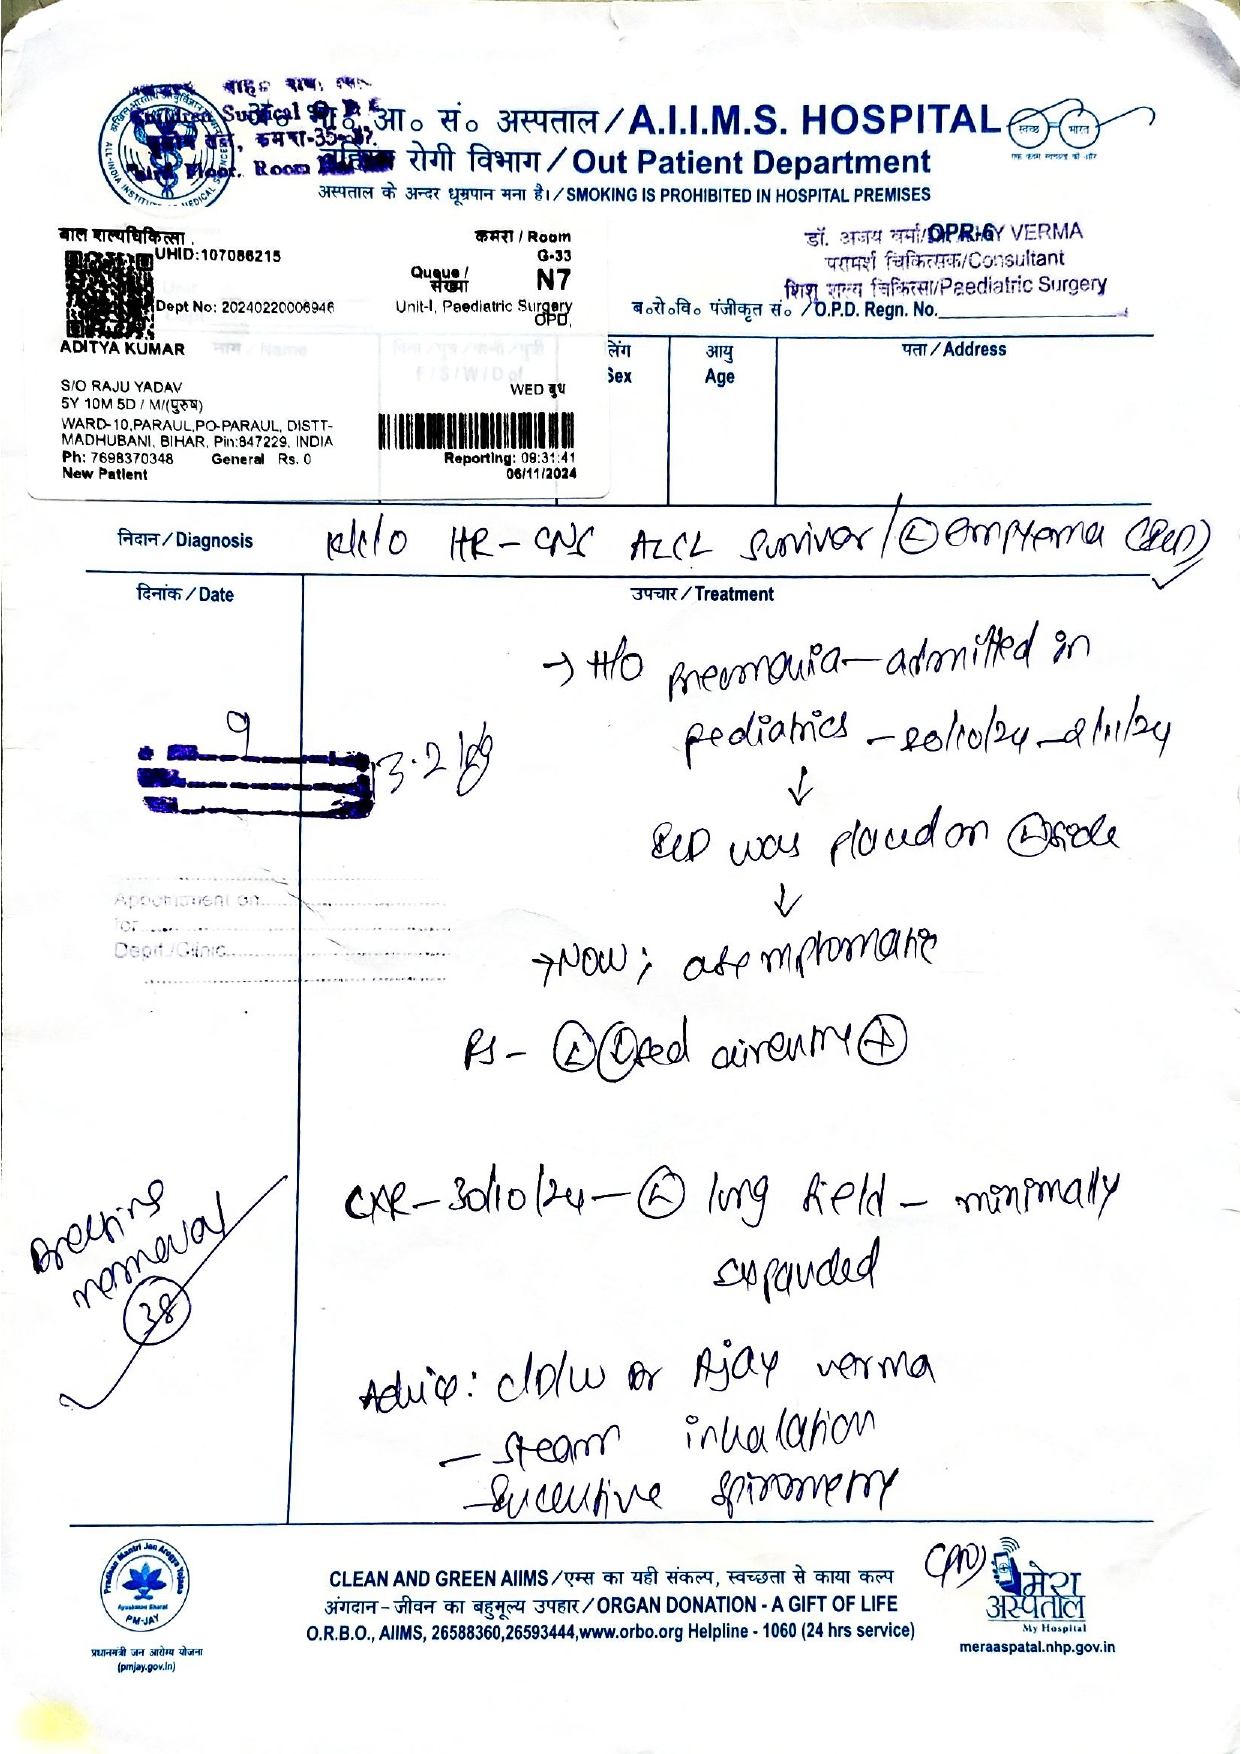 अ० भा० आ० सं० अस्पताल / A.I.I.M.S. HOSPITAL
बहिरंग रोगी विभाग / Out Patient Department
अस्पताल के अन्दर धूम्रपान मना है। / SMOKING IS PROHIBITED IN HOSPITAL PREMISES
स्वच्छ भारत
एक कदम स्वच्छता की ओर
Children Surgical
कमरा-35
Floor. Room
बाल शल्यचिकित्सा
कमरा / Room
UHID:107086215
G-33
Queue / संख्या
N7
Dept No: 20240220006946
Unit-I, Paediatric Surgery
OPD,
ADITYA KUMAR
S/O RAJU YADAV
WED बुध
5Y 10M 5D / M/(पुरुष)
WARD-10,PARAUL,PO-PARAUL, DISTT-
MADHUBANI, BIHAR, Pin:847229, INDIA
Ph: 7698370348 General Rs. 0
Reporting: 09:31:41
New Patient
06/11/2024
OPR-6
डॉ. अजय वर्मा/ VERMA
परामर्श चिकित्सक/Consultant
शिशु शल्य चिकित्सा/Paediatric Surgery
ब०रो०वि० पंजीकृत सं० / O.P.D. Regn. No.
लिंग
Sex
आयु
Age
पता / Address
निदान / Diagnosis
K/C/O HR-CNS ALCL Survivor / Ⓛ Empyema (ICD)
दिनांक / Date
उपचार / Treatment
→ H/O pneumonia - admitted in
pediatrics - 20/10/24 - 2/11/24
↓
ICD was placed on Ⓛ side
↓
→ Now; asymptomatic
RS - Ⓛ Ⓓsed air entry ⊕
9
13.2 kg
Appointment on
for
Deptt./Clinic
CXR - 30/10/24 - Ⓛ lung field - minimally
expanded
Dressing
removal
38
Advice: C/D/W Dr Ajay Verma
- Steam inhalation
- Incentive spirometry
Pradhan Mantri Jan Arogya Yojana
Ayushman Bharat
PM-JAY
प्रधानमंत्री जन आरोग्य योजना
(pmjay.gov.in)
CLEAN AND GREEN AIIMS / एम्स का यही संकल्प, स्वच्छता से काया कल्प
अंगदान - जीवन का बहुमूल्य उपहार / ORGAN DONATION - A GIFT OF LIFE
O.R.B.O., AIIMS, 26588360,26593444,www.orbo.org Helpline - 1060 (24 hrs service)
मेरा
अस्पताल
My Hospital
meraaspatal.nhp.gov.in